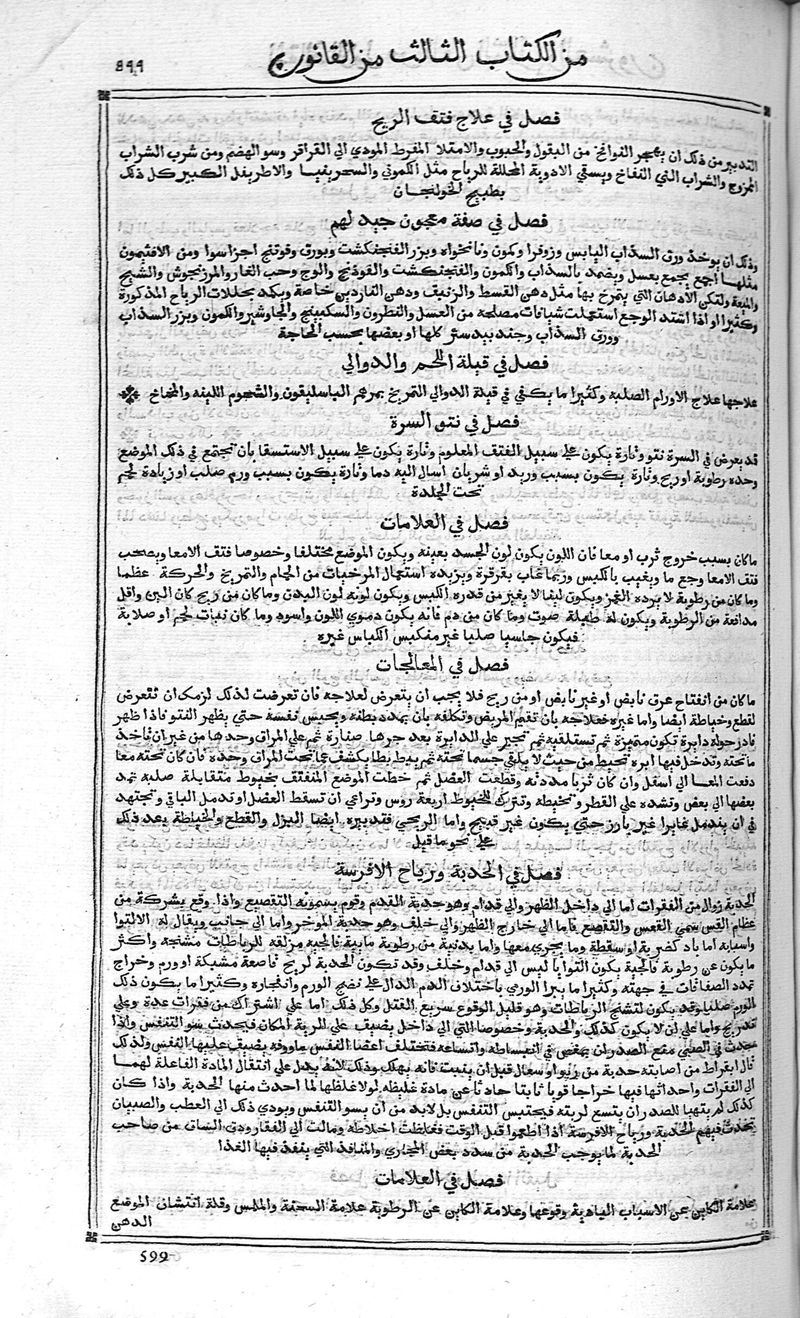 من الكتاب الثالث من القانون ٥٩٩
فصل في علاج فتق الريح
التدبير من ذلك ان يهجر النوافخ من البقول والحبوب والامتلا المفرط المودي الي القراقر وسو الهضم ومن شرب الشراب
الممزوج والشراب التي النفاخ ويسقي الادوية المحللة للرياح مثل الكموني والسجرينيا والاطريفل الكبير كل ذلك
بطبيخ الخولنجان
فصل في صفة معجون جيد لهم
وذلك ان يوخذ ورق السذاب اليابس وزوفرا وكمون ونانخواه وبزر الفنجنكشت وبورق وفوتنج اجزا سوا ومن الافتيمون
مثلها اجمع يجمع بعسل ويضمد بالسذاب والكمون والفنجنكشت والفوذنج والوج وحب الغار والمرزنجوش والشيح
والميعة ولتكن الادهان التي يتمرخ بها مثل دهن القسط والزنبق ودهن الناردين خاصة ويكمد بمحللات الرياح المذكورة
وكثيرا او اذا اشتد الوجع استعملت شيافات مصلحة من العسل والنطرون والسكبينج والجاوشير والكمون وبزر السذاب
وورق السذاب وجندبيدستر كلها او بعضها بحسب الحاجة
فصل في قيلة اللحم والدوالي
علاجها علاج الاورام الصلبه وكثيرا ما يكفي في قيلة الدوالي التمريخ بمرهم الباسليقون والشحوم اللينه والمخاخ
فصل في نتو السرة
قد يعرض في السرة نتو وتارة يكون علي سبيل الفتق المعلوم وتارة يكون علي سبيل الاستسقا بان تجتمع في ذلك الموضع
وحده رطوبة او ريح وتارة يكون بسبب وريد او شريان اسال اليه دما وتارة يكون بسبب ورم صلب او زيادة لحم
تحت الجلدة
فصل في العلامات
ما كان بسبب خروج ثرب او معا فان اللون يكون لون الجسد بعينه ويكون الموضع مختلفا وخصوصا فتق الامعا ويصحب
فتق الامعا وجع ما ويغيب بالكبس وربما غاب بقرقرة ويزيده استعمال المرخيات من الحمام والتمريخ والحركة عظما
وما كان من رطوبة لا يرده الغمز ويكون لينا لا يغير من قدره الكبس ويكون لونه لون البدن وما كان من ريح كان الين واقل
مدافعة من الرطوبة ويكون له طبلية صوت وما كان من دم فانه يكون دموي اللون واسود وما كان نبات لحم او صلابة
فيكون جاسيا صلبا غير منكبس انكباس غيره
فصل في المعالجات
ما كان من انفتاح عرق نابض او غير نابض او من ريح فلا يجب ان يتعرض لعلاجه فان تعرضت لذلك لزمك ان تتعرض
لقطع وخياطة ايضا واما غيره فعلاجه بان تقيم المريض وتكلفه بان يمدد بطنه ويحبس نفسه حتي يظهر النتو فاذا ظهر
فادر حوله دايرة تكون متميزة ثم تستلقيه ثم تحير علي الدايرة بعد جرها صنارة ثم علي المراق وحدها من غير ان تاخذ
ما تحته وتدخل فيها ابرة تخيط من حيث لا يلقي جسما تحته ثم يبط بطا يكشف عما تحت المراق وحده فان كان تحته معا
دفعت المعا الي اسفل وان كان ثربا مددته وقطعت الفضل ثم خطت الموضع المنفتق بخيوط متقابلة صلبه تمد
بعضها الي بعض وتشده علي القطر وتخيطه وتترك للخيوط اربعة روس وتراعي ان تسقط الفضل او تدمل الباقي وتجتهد
في ان يندمل غايرا غير بارز حتي يكون غير قبيح واما الريحي فتدبيره ايضا البزل والقطع والخياطة بعد ذلك
علي نحو ما قيل
فصل في الحدبة ورياح الافرسة
الحدبة زوال من الفقرات اما الي داخل الظهر والي قدام وهو حدبة القدم وقوم يسمونه التقصيع واذا وقع بشركة من
عظام القس سمي القعس والتقصع فاما الي خارج الظهر والي خلف وهو حدبة الموخر واما الي جانب ويقال له الالتوا
واسبابه اما باد كضربة او سقطة وما يجري معها واما بدنية من رطوبة مايية فالجية مزلقة للرباطات مشنجه واكثر
ما يكون عن رطوبة فالجية يكون التوايا ليس الي قدام وخلف وقد تكون الحدبة لريح ناصعة مشبكة او ورم وخراج
تمدد الصفاقات في جهته وكثيرا ما يبرا الوري باختلاف الدم الدال علي نضج الورم وانفجاره وكثيرا ما يكون ذلك
الورم صلبا وقد يكون لتشنج الرباطات وهو قليل الوقوع سريع القتل وكل ذلك اما علي اشتراك من فقرات عدة وعلي
تدريج واما علي ان لا يكون كذلك والحدبة وخصوصا التي الي داخل يضيق علي الرية المكان فيحدث سو التنفس واذا
حدث في الصبي منع الصدر ان يمعن في انبساطه واتساعه فتختلف اعضا النفس ماووفه يضيق عليها النفس ولذلك
قال ابقراط من اصابته حدبة من ربو او سعال قبل ان ينبت فانه يهلك وذلك لانه يدل علي انتقال المادة الفاعلة لهما
الي الفقرات واحداثها فيها خراجا قويا ثابتا حادثا عن مادة غليظه لولا غلظها لما احدث منها الحدبة واذا كان
كذلك لم يتهيا للصدر ان يتسع لريته فيحتبس التنفس بل لابد من ان يسو التنفس ويودي ذلك الي العطب والصبيان
تحدث فيهم الحدبة ورياح الافرسة اذا اطعموا قبل الوقت فغلظت اخلاطه ومالت الي الفقار ودق الساق من صاحب
الحدبة لما يوجب الحدبة من سدد بعض المجاري والمنافذ التي ينفذ فيها الغذا
فصل في العلامات
علامة الكاين عن الاسباب البادية وقوعها وعلامة الكاين عن الرطوبة علامة السحنة والملمس وقلة انتشاف الموضع
الدهن
599